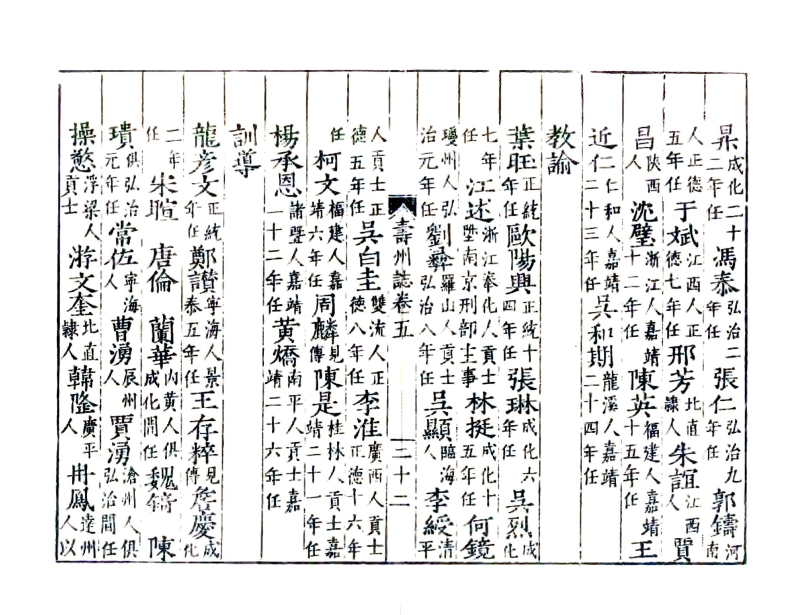 杲成化二十二年任馮泰弘治二年任張仁弘治九年任郭鑄河南
人正德五年任于斌江西人正德七年任邢芳北直隸人朱誼江西人賈
昌陝西人沈璧浙江人嘉靖十二年任陳英福建人嘉靖十五年任王
近仁仁和人嘉靖二十三年任吳和期龍溪人嘉靖二十四年任
教諭
葉旺正統年任歐陽興正統十四年任張琳成化六年任吳烈成化
七年任江述浙江奉化人貢士陞南京刑部主事林挺成化十五年任何鏡
瓊州人弘治元年任劉彝羅山人貢士弘治八年任吳顯臨海人李綬清平
壽州誌卷五
二十二
人貢士正德五年任吳白圭雙流人正德八年任李淮廣西人貢士正德十六年
任柯文福建人嘉靖六年任周麟見傳陳是桂林人貢士嘉靖二十一年任
楊承恩諸暨人嘉靖二十二年任黃燆南平人貢士嘉靖二十六年任
訓導
龍彥文正統年任鄭讚寧海人景泰五年任王存粹見傳詹慶成化
二年任朱暄唐倫蘭華內黃人俱成化間任魏錡陳
瓆俱弘治元年任常伍寧海人曹湧辰州人賈湧滄州人俱弘治間任
操憼浮梁人貢士游文奎北直隸人韓隆廣平人冉鳳達州人以